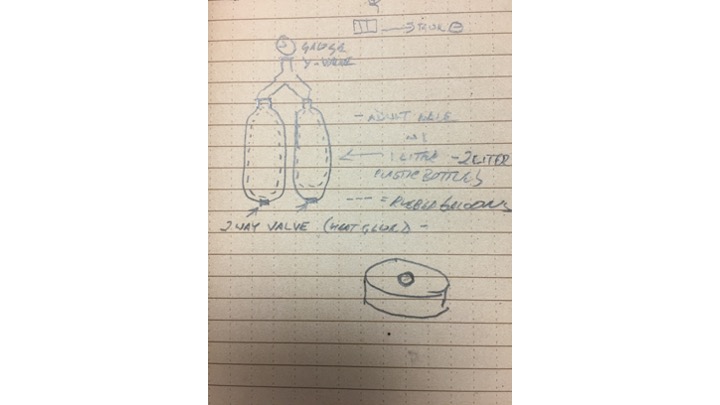 GAUGE
Y-VALVE
- ADULT MALE
1 LITRE - 2 LITER
PLASTIC BOTTLES
--- = RUBBER BALLOONS
2 WAY VALVE (HEAT GLUED) -